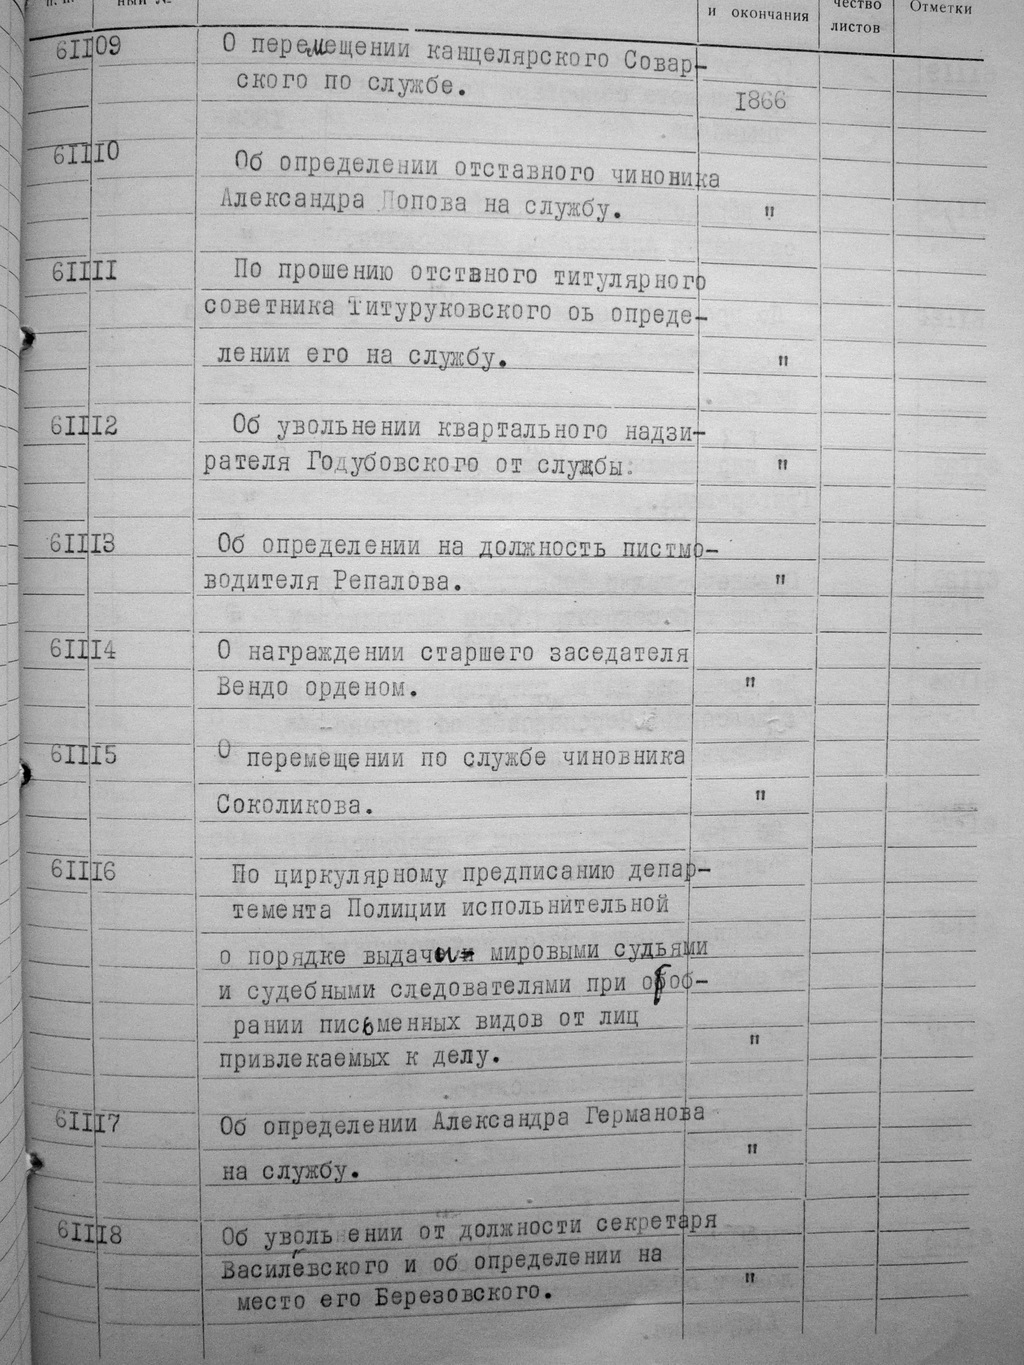 п. п. ный №
и окончания
чество
листов
Отметки
61109 О перемещении канцелярского Совар-
ского по службе.
1866
61110 Об определении отставного чиноника
Александра Попова на службу. "
61111 По прошению отствного титулярного
советника Титуруковского оь опреде-
лении его на службу. "
61112 Об увольнении квартального надзи-
рателя Годубовского от службы. "
61113 Об определении на должность пистмо-
водителя Репалова. "
61114 О награждении старшего заседателя
Вендо орденом. "
61115 О перемещении по службе чиновника
Соколикова. "
61116 По циркулярному предписанию депар-
темента Полиции испольнительной
о порядке выдачи мировыми судьями
и судебными следователями при отоб-
рании письменных видов от лиц
привлекаемых к делу. "
61117 Об определении Александра Германова
на службу. "
61118 Об уволь ении от должности секретаря
Василевского и об определении на
место его Березовского. "